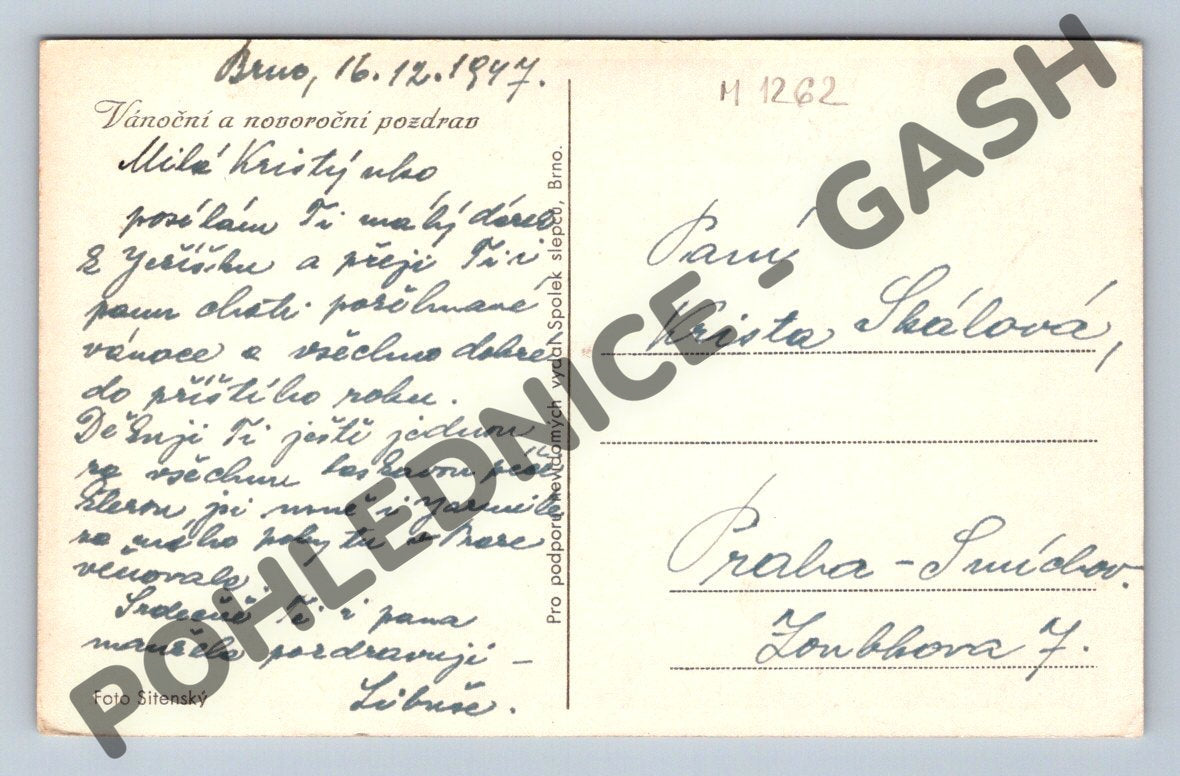 Brno, 16.12.1947.
Vánoční a novoroční pozdrav
Milá Kristýnko
posílám Ti malý dárek
z Ježíšku a přeji Ti i
panu choti požehnané
vánoce a všechno dobré
do příštího roku.
Děkuji Ti ještě jednou
za všechnu laskavou péči
kterou jsi mně i Jarmile
za mého pobytu v Praze
věnovala
Srdečně Tě i pana
manžela pozdravuji –
Libuše.
Foto Sitenský
Pro podporu nevidomých vydal Spolek slepců, Brno.
M 1262
Paní
Krista Skálová,
Praha – Smíchov.
Zoubkova 7.
POHLEDNICE - GASH